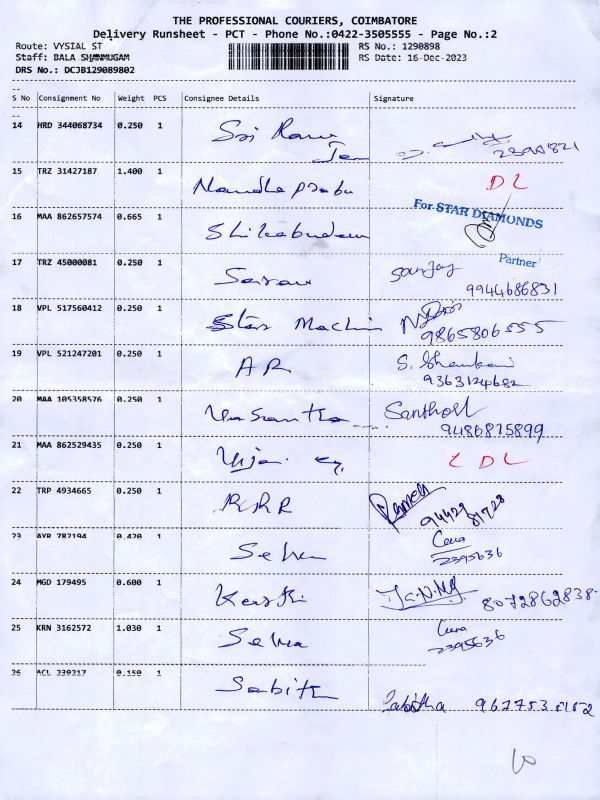 THE PROFESSIONAL COURIERS, COIMBATORE
Delivery Runsheet - PCT - Phone No.:0422-3505555 - Page No.:2
Route: VYSIAL ST RS No.: 1290898
Staff: BALA SHANMUGAM RS Date: 16-Dec-2023
DRS No.: DCJB129089802
S No Consignment No Weight PCS Consignee Details Signature
14 HRD 344068734 0.250 1 Sri Ram
15 TRZ 31427187 1.400 1 Nandha prabu DL
16 MAA 862657574 0.665 1 For STAR DIAMONDS
Partner
17 TRZ 45000081 0.250 1 Saran Sanjay
9944686831
18 VPL 517560412 0.250 1 Star Machin
9865806555
19 VPL 521247201 0.250 1 AR
9363124682
20 MAA 105358576 0.250 1 Vasantha Santhosh
9486815899
21 MAA 862529435 0.250 1 LDL
22 TRP 4934665 0.250 1 RRR Ramesh
94429 81728
23 AYR 787194 0.420 1 Selva
2395636
24 MGD 179495 0.600 1 8072862838
25 KRN 3162572 1.030 1 Selva
2395636
26 ACL 239217 0.150 1 Sabitha Sabitha